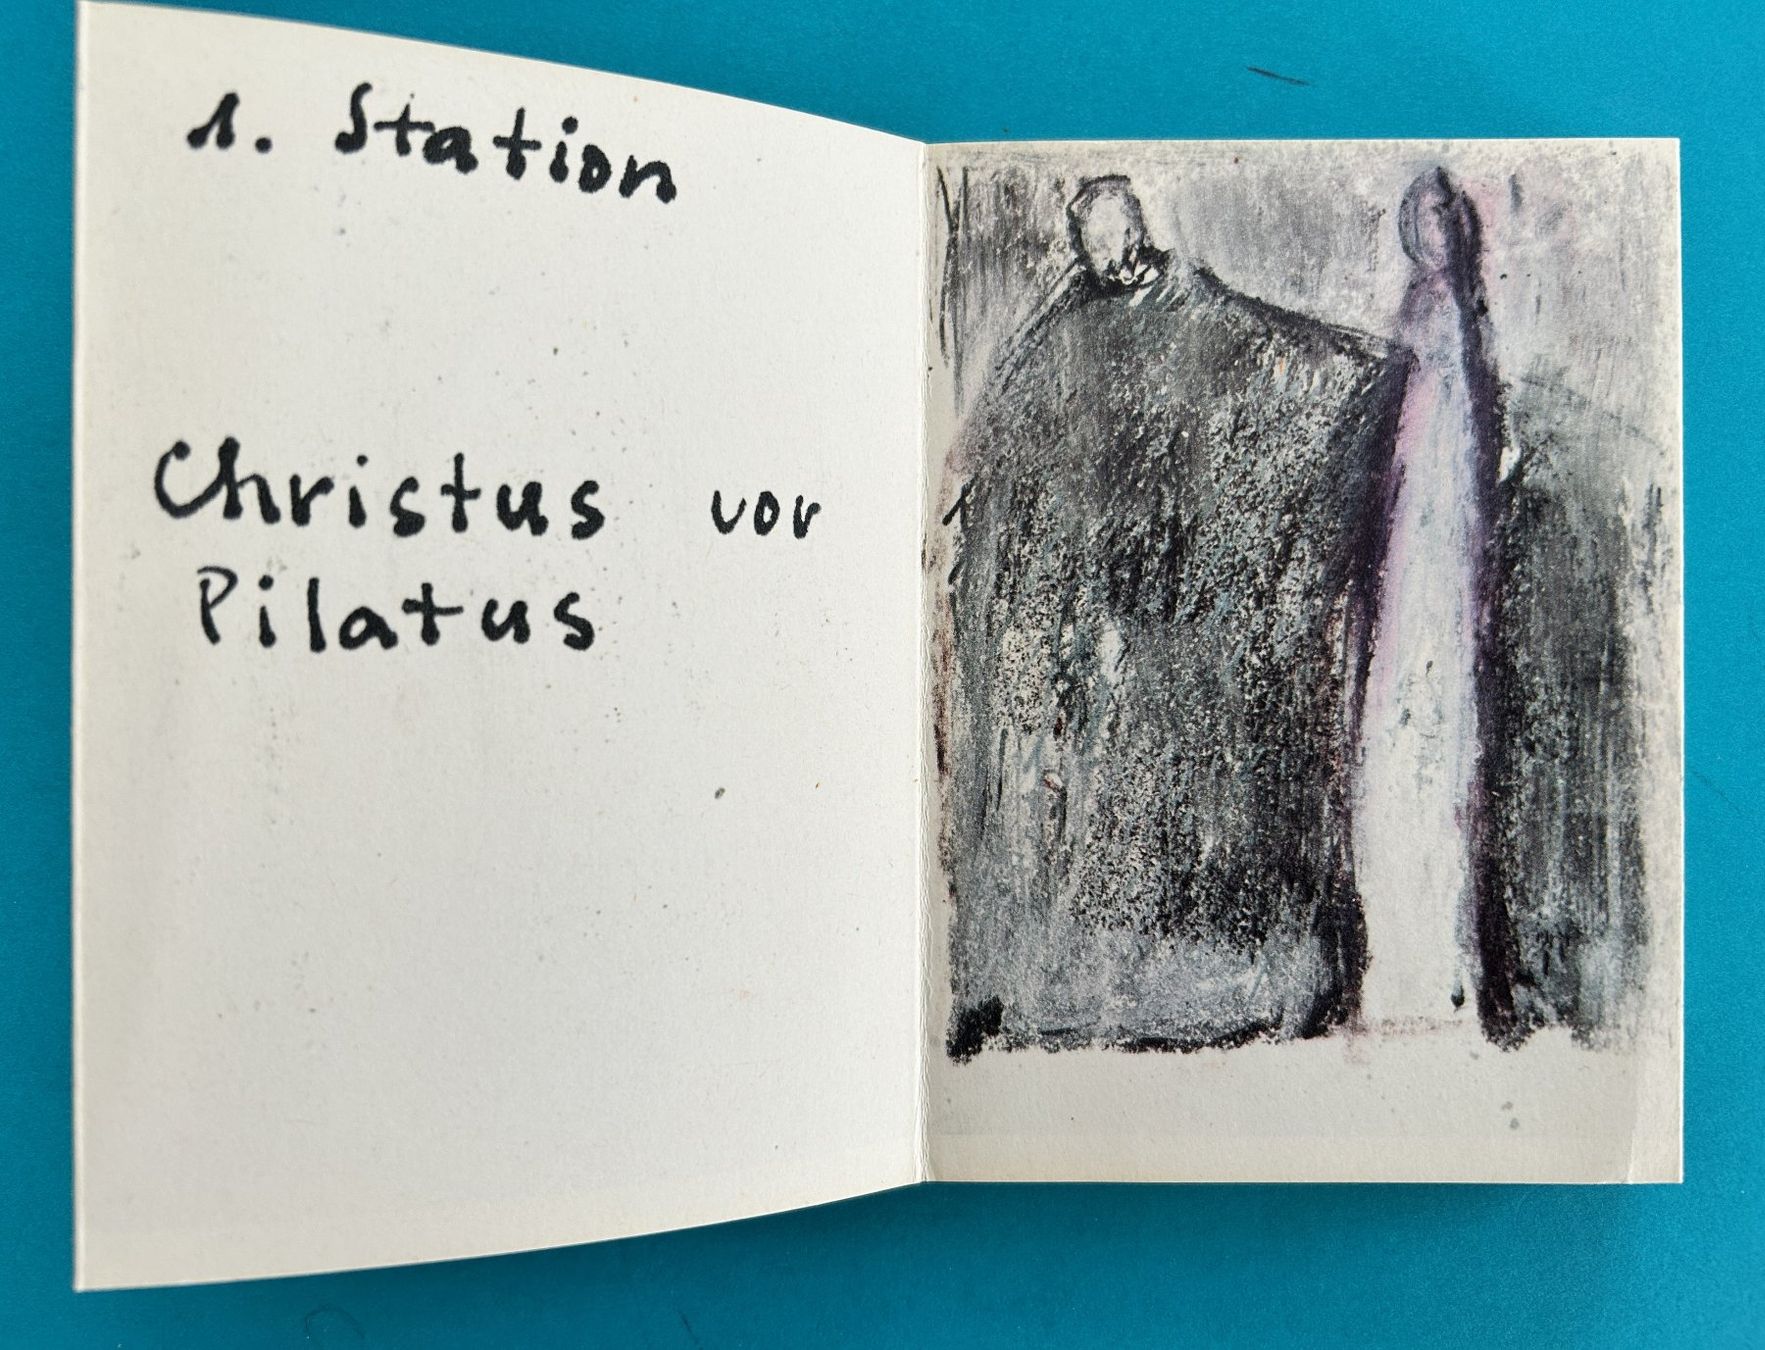 1. Station
Christus vor
Pilatus